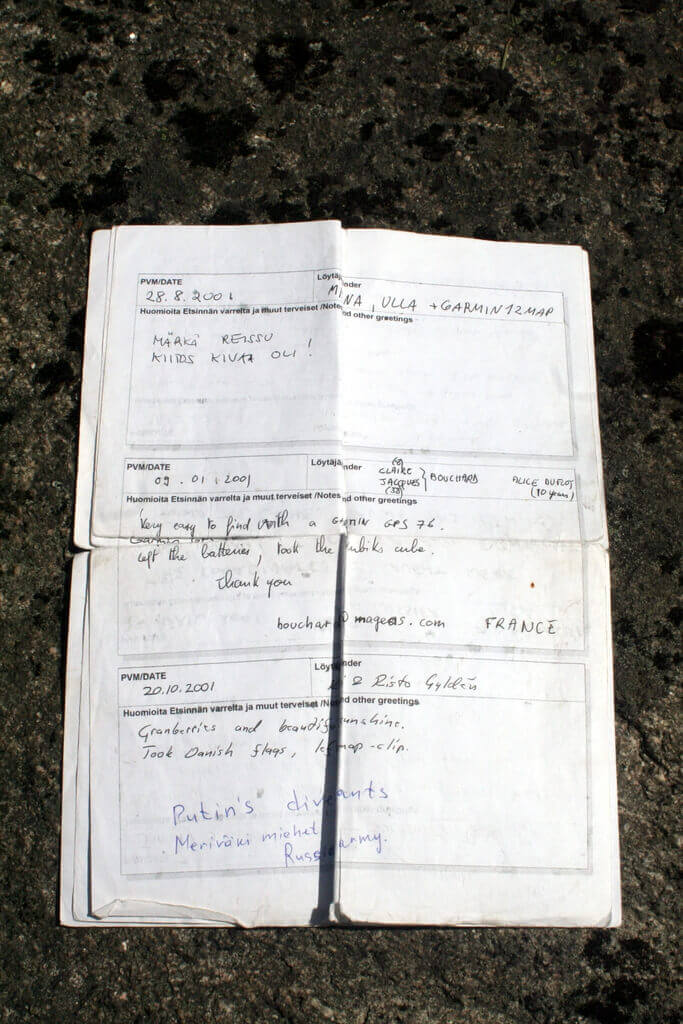 PVM/DATE Löytäj nder
28.8.2001 MI NA, ULLA + GARMIN 12 MAP
Huomioita Etsinnän varrelta ja muut terveiset /Note nd other greetings
MÄRKÄ REISSU
KIITOS KIVAA OLI !
PVM/DATE Löytäjä nder
09.01.2001 CLAIRE JACQUES BOUCHARD ALICE (10 years)
Huomioita Etsinnän varrelta ja muut terveiset /Notes nd other greetings
Very easy to find with a GPS 76.
Left the batteries, took the ubiks cube.
Thank you
bouchar @ .com FRANCE
PVM/DATE Löyt nder
20.10.2001 & Risto Gyldén
Huomioita Etsinnän varrelta ja muut terveiset /No nd other greetings
Cranberries and beautif sunshine.
Took Danish flags, map-clip.
Putin's
Meriväki miehet
Russi army.